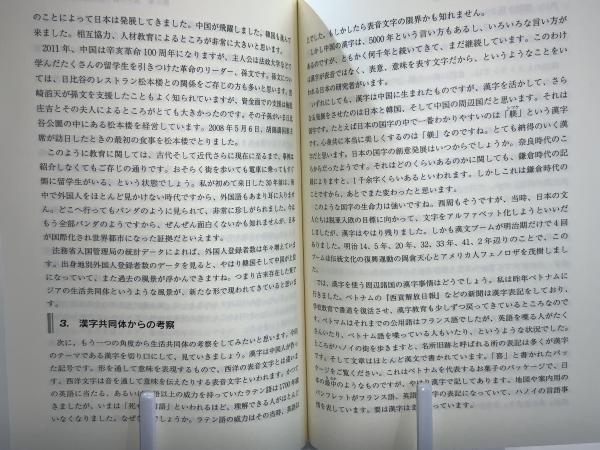 のことによって日本は発展してきました。中国が飛躍しました。韓国も進んで
来ました。相互協力、人材教育によるところが非常に大きいと思います。
2011年、中国は辛亥革命100周年になりますが、主人公は法政大学などで
学んだたくさんの留学生を引きつけた革命のリーダー、孫文です。孫文につい
ては、日比谷のレストラン松本楼との関係をご存じの方も多いと思います。
崎滔天が孫文を支援したこともよく知られていますが、資金面での支援は梅屋
庄吉とその夫人によるところがとても大きかったのです。その子孫がいまは日比
谷公園の中にある松本楼を経営しています。2008年5月6日、胡錦濤国家主
席が訪日したときの最初の食事を松本楼でとりました。
このように教育に関しては、古代そして近代さらに現在に至るまで、事例を
紹介しなくてもご存じの通りです。おそらく街を歩いても電車に乗ってもすぐ
側に留学生がいる、という状態でしょう。私が初めて来日した30年前は、街
中で外国人をほとんど見かけない時代ですから、外国語もあまり耳に入りませ
ん。どこへ行ってもパンダのように見られて、非常に珍しがられました。今は
もう全部パンダのようですから、ぜんぜん面白くないかも知れませんが、日本
が国際化され世界都市になった証拠だといえます。
法務省入国管理局の統計データによれば、外国人登録者数は年々増えていま
す。出身地別外国人登録者数のデータを見ると、やはり韓国そして中国が上位
になっていて、また過去の風景が浮かんできますね。つまり古来存在した東ア
ジアの生活共同体というような風景が、新たな形で現われてきていると思いま
す。
3. 漢字共同体からの考察
次に、もう一つの角度から生活共同体の考察をしてみたいと思います。今回
のテーマである漢字を切り口にして、見ていきましょう。漢字は中国人が作っ
た記号です。形を通して意味を表現するもので、西洋の表音文字とは違いま
す。西洋文字は音を通して意味を伝えたりする表音文字といわれます。かつて
の英語に当たる、あるいは
以上の威力を持っていたラテン語は1700年続
きましたが、いまは「死
語」といわれるほど、理解できる人がほとんど
いなくなりました。なぜ
でしょうか。ラテン語の威力はその当時、英語以
上でした。もしかしたら表音文字の限界かも知れません。
しかし中国の漢字は、5000年という言い方もあるし、いろいろな言い方が
ありますが、ともかく何千年と続いてきて、まだ継続しています。このわけ
は漢字が表音ではなく、表意、意味を表す文字だから、というようなことをい
われる日本の研究者がいます。
いずれにしても、漢字は中国に生まれたものですが、漢字を活かして、さら
なる発展をさせたのは日本と韓国、そして中国の周辺国だと思います。それは
国字です。たとえば日本の国字の中で一番わかりやすいのは「躾」という漢字
です。心身共に本当に美しくするのは「躾」なのですね。とても納得のいく漢
字だと思います。日本の国字の創意発展はいつからでしょうか。奈良時代のこ
ろからだったようです。それはどのくらいあるのかに関しても、鎌倉時代の記
録によりますと、1千余字くらいあるといわれます。しかしこれは鎌倉時代の
ことですから、あとでまた変わったと思います。
このような国字の生命力は強いですね。西周もそうですが、当時、日本の文
人たちは脱亜入欧の目標に向かって、文字をアルファベット化しようといいだ
しましたが、漢字はやはり残りました。しかも漢文ブームが明治期だけで4回
もありました。明治14、5年、20年、32、33年、41、2年辺りのことで、この
ブームは伝統文化の復興運動の岡倉天心とアメリカ人フェノロサを茂謝しまし
た。
では、漢字を使う周辺諸国の漢字事情はどうでしょう。私は昨年ベトナムに
行きました。ベトナムの『西貢解放日報』などの新聞は漢字表記をしており、
学校教育で書道を復活させ、漢字教育も少しずつ戻ってきているところなので
す。ベトナムはそれまでの公用語はフランス語でしたが、英語を喋る人がたく
さんいたり、ベトナム語を喋っている人もいたり、というような状況でした。
ところがハノイの街を歩きますと、名所旧跡と呼ばれる所の表記は多くが漢字
です。そして文章はほとんど漢文で書かれています。「喜」と書かれたパッ
ケージをご覧ください。これはベトナムを代表するお菓子のパッケージで、日
本の最中のようなものですが、やはり漢字で記してあります。地図や案内用の
パンフレットがフランス語、英語、
字表記になっていて、ハノイの言語事
情を表しています。要は漢字はま
っています。